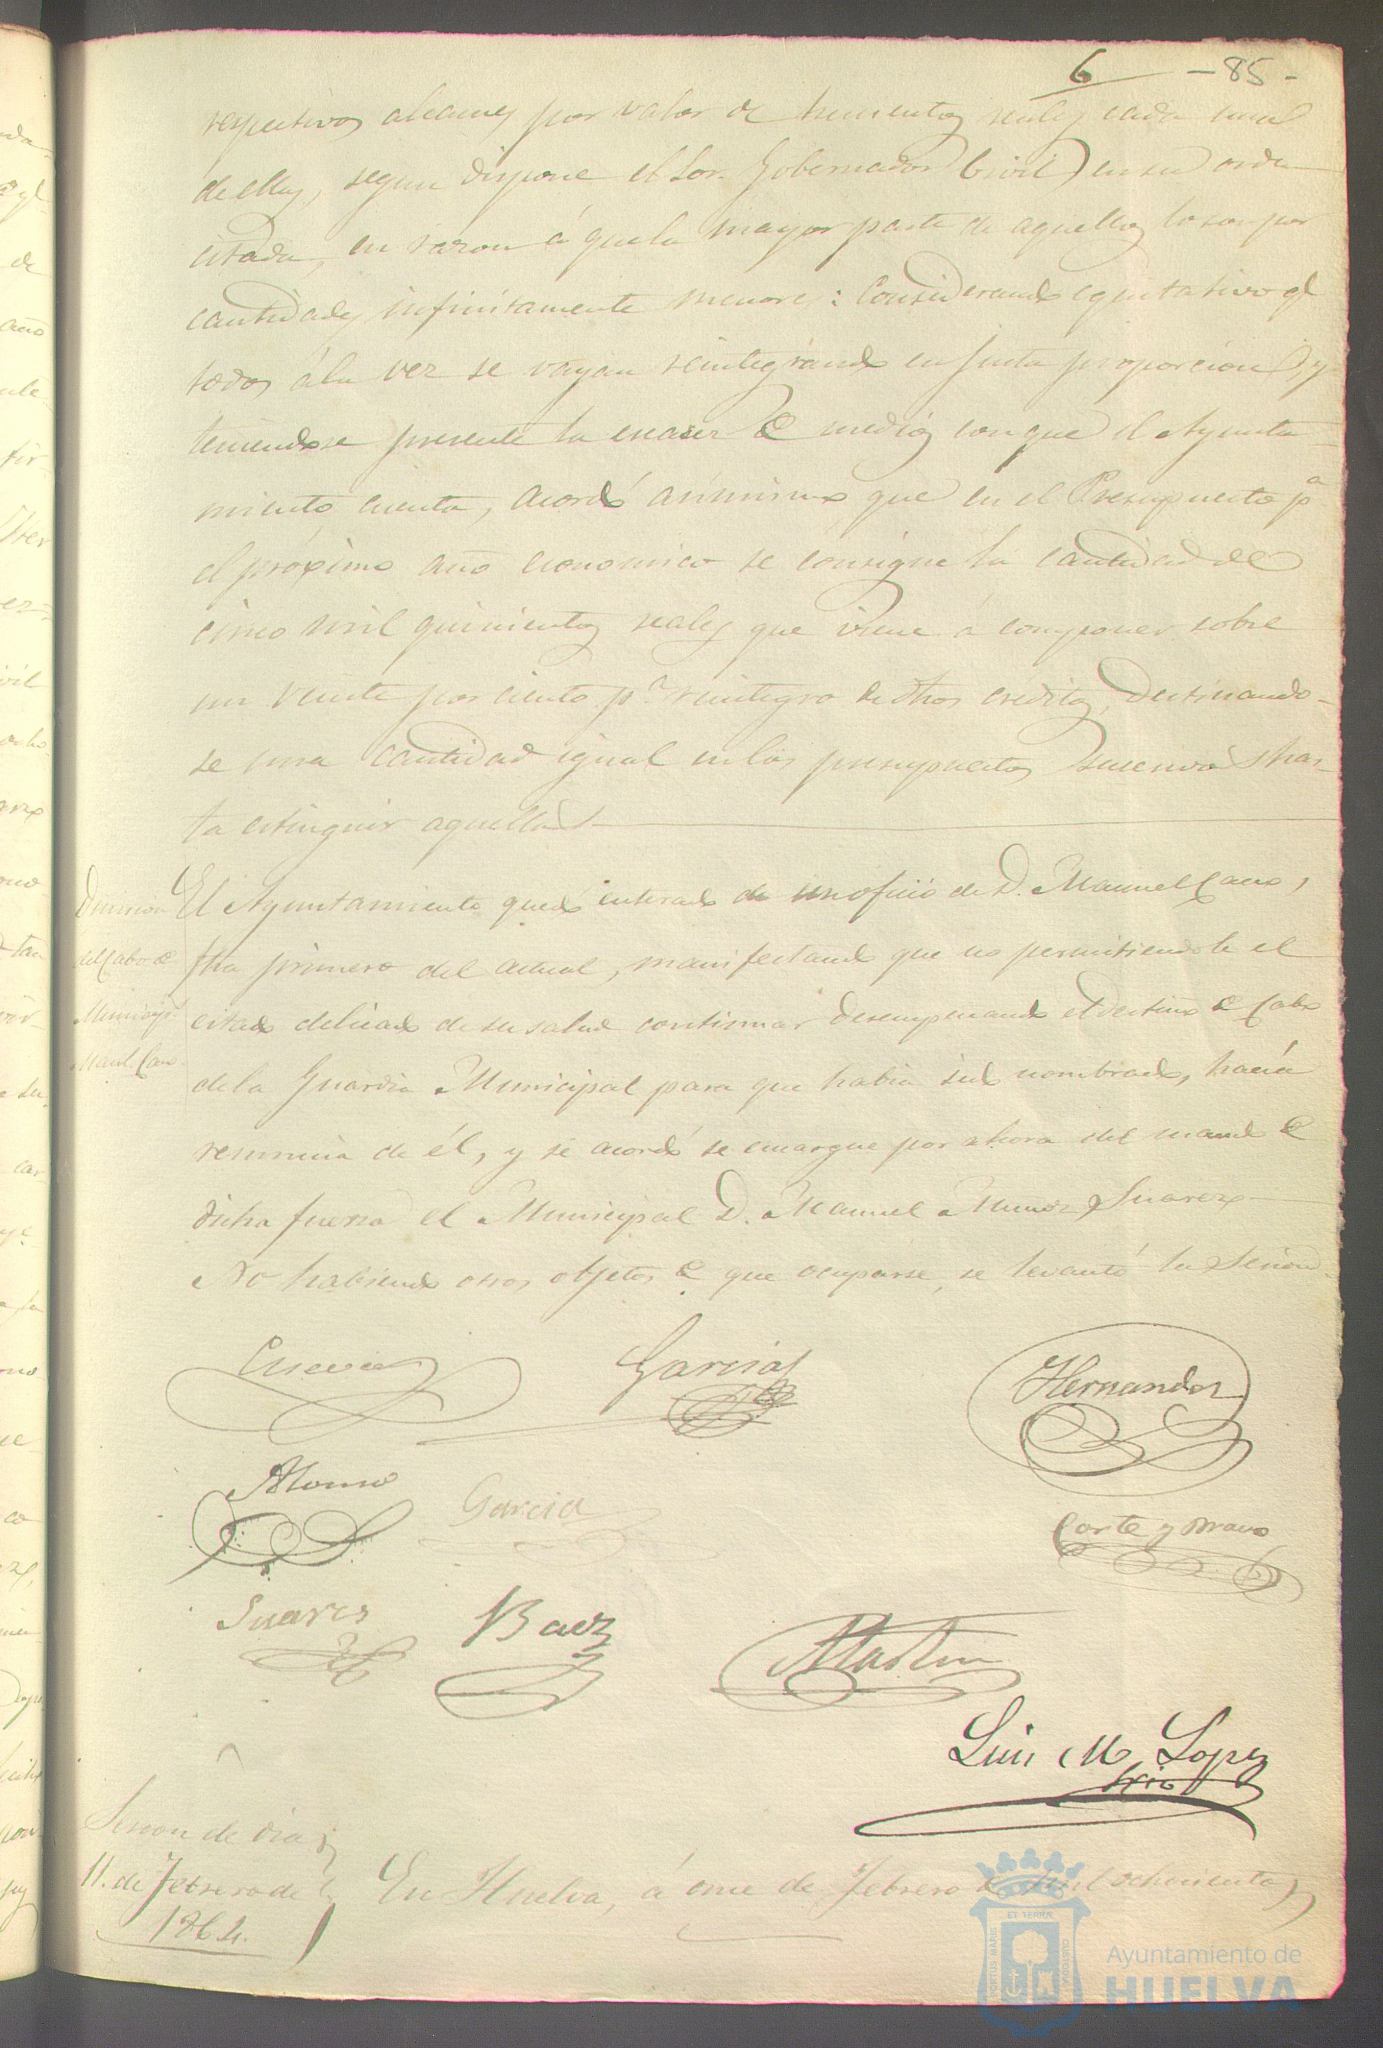 6 - 85 -
respectivos alcances por valor de trescientos reales cada una
de ellas, segun dispone el Sor. Gobernador Civil en su orden
citada, en razon á que la mayor parte de aquellos lo son por
cantidades infinitamente menores: Considerando equitativo q.e
todos á la vez se vayan reintegrando en justa proporcion, y
teniendose presente la escasez de medios con que el Ayunta-
miento cuenta, acordó asimismo que en el Presupuesto p.a
el próximo año economico se consigne la cantidad de
cinco mil quinientos reales que viene á componer sobre
un veinte por ciento p.a reintegro de dhos creditos, destinando-
se una cantidad igual en los presupuestos sucesivos has-
ta estinguir aquellos
Dimision
del Cabo de
Municip.s
Man.l Cano
El Ayuntamiento quedó enterado de un oficio de D. Manuel Cano,
fha primero del actual, manifestando que no permitiendole el
estado delicado de su salud continuar desempeñando el destino de Cabo
de la Guardia Municipal para que habia sido nombrado, hacia
renuncia de él, y se acordó se encargue por ahora del mando de
dicha fuerza el Municipal D. Manuel Muñoz Suarez
No habiendo otros objetos de que ocuparse, se levantó la Sesion
Garcia
Hernandez
Alonso
Garcia
Corte y Bravo
Suares
Baez
Martin
Luis M Lopez
Srio
Sesion de dia
11. de Febrero de
1864.
En Huelva, á once de Febrero de mil ochocientos
Ayuntamiento de
HUELVA